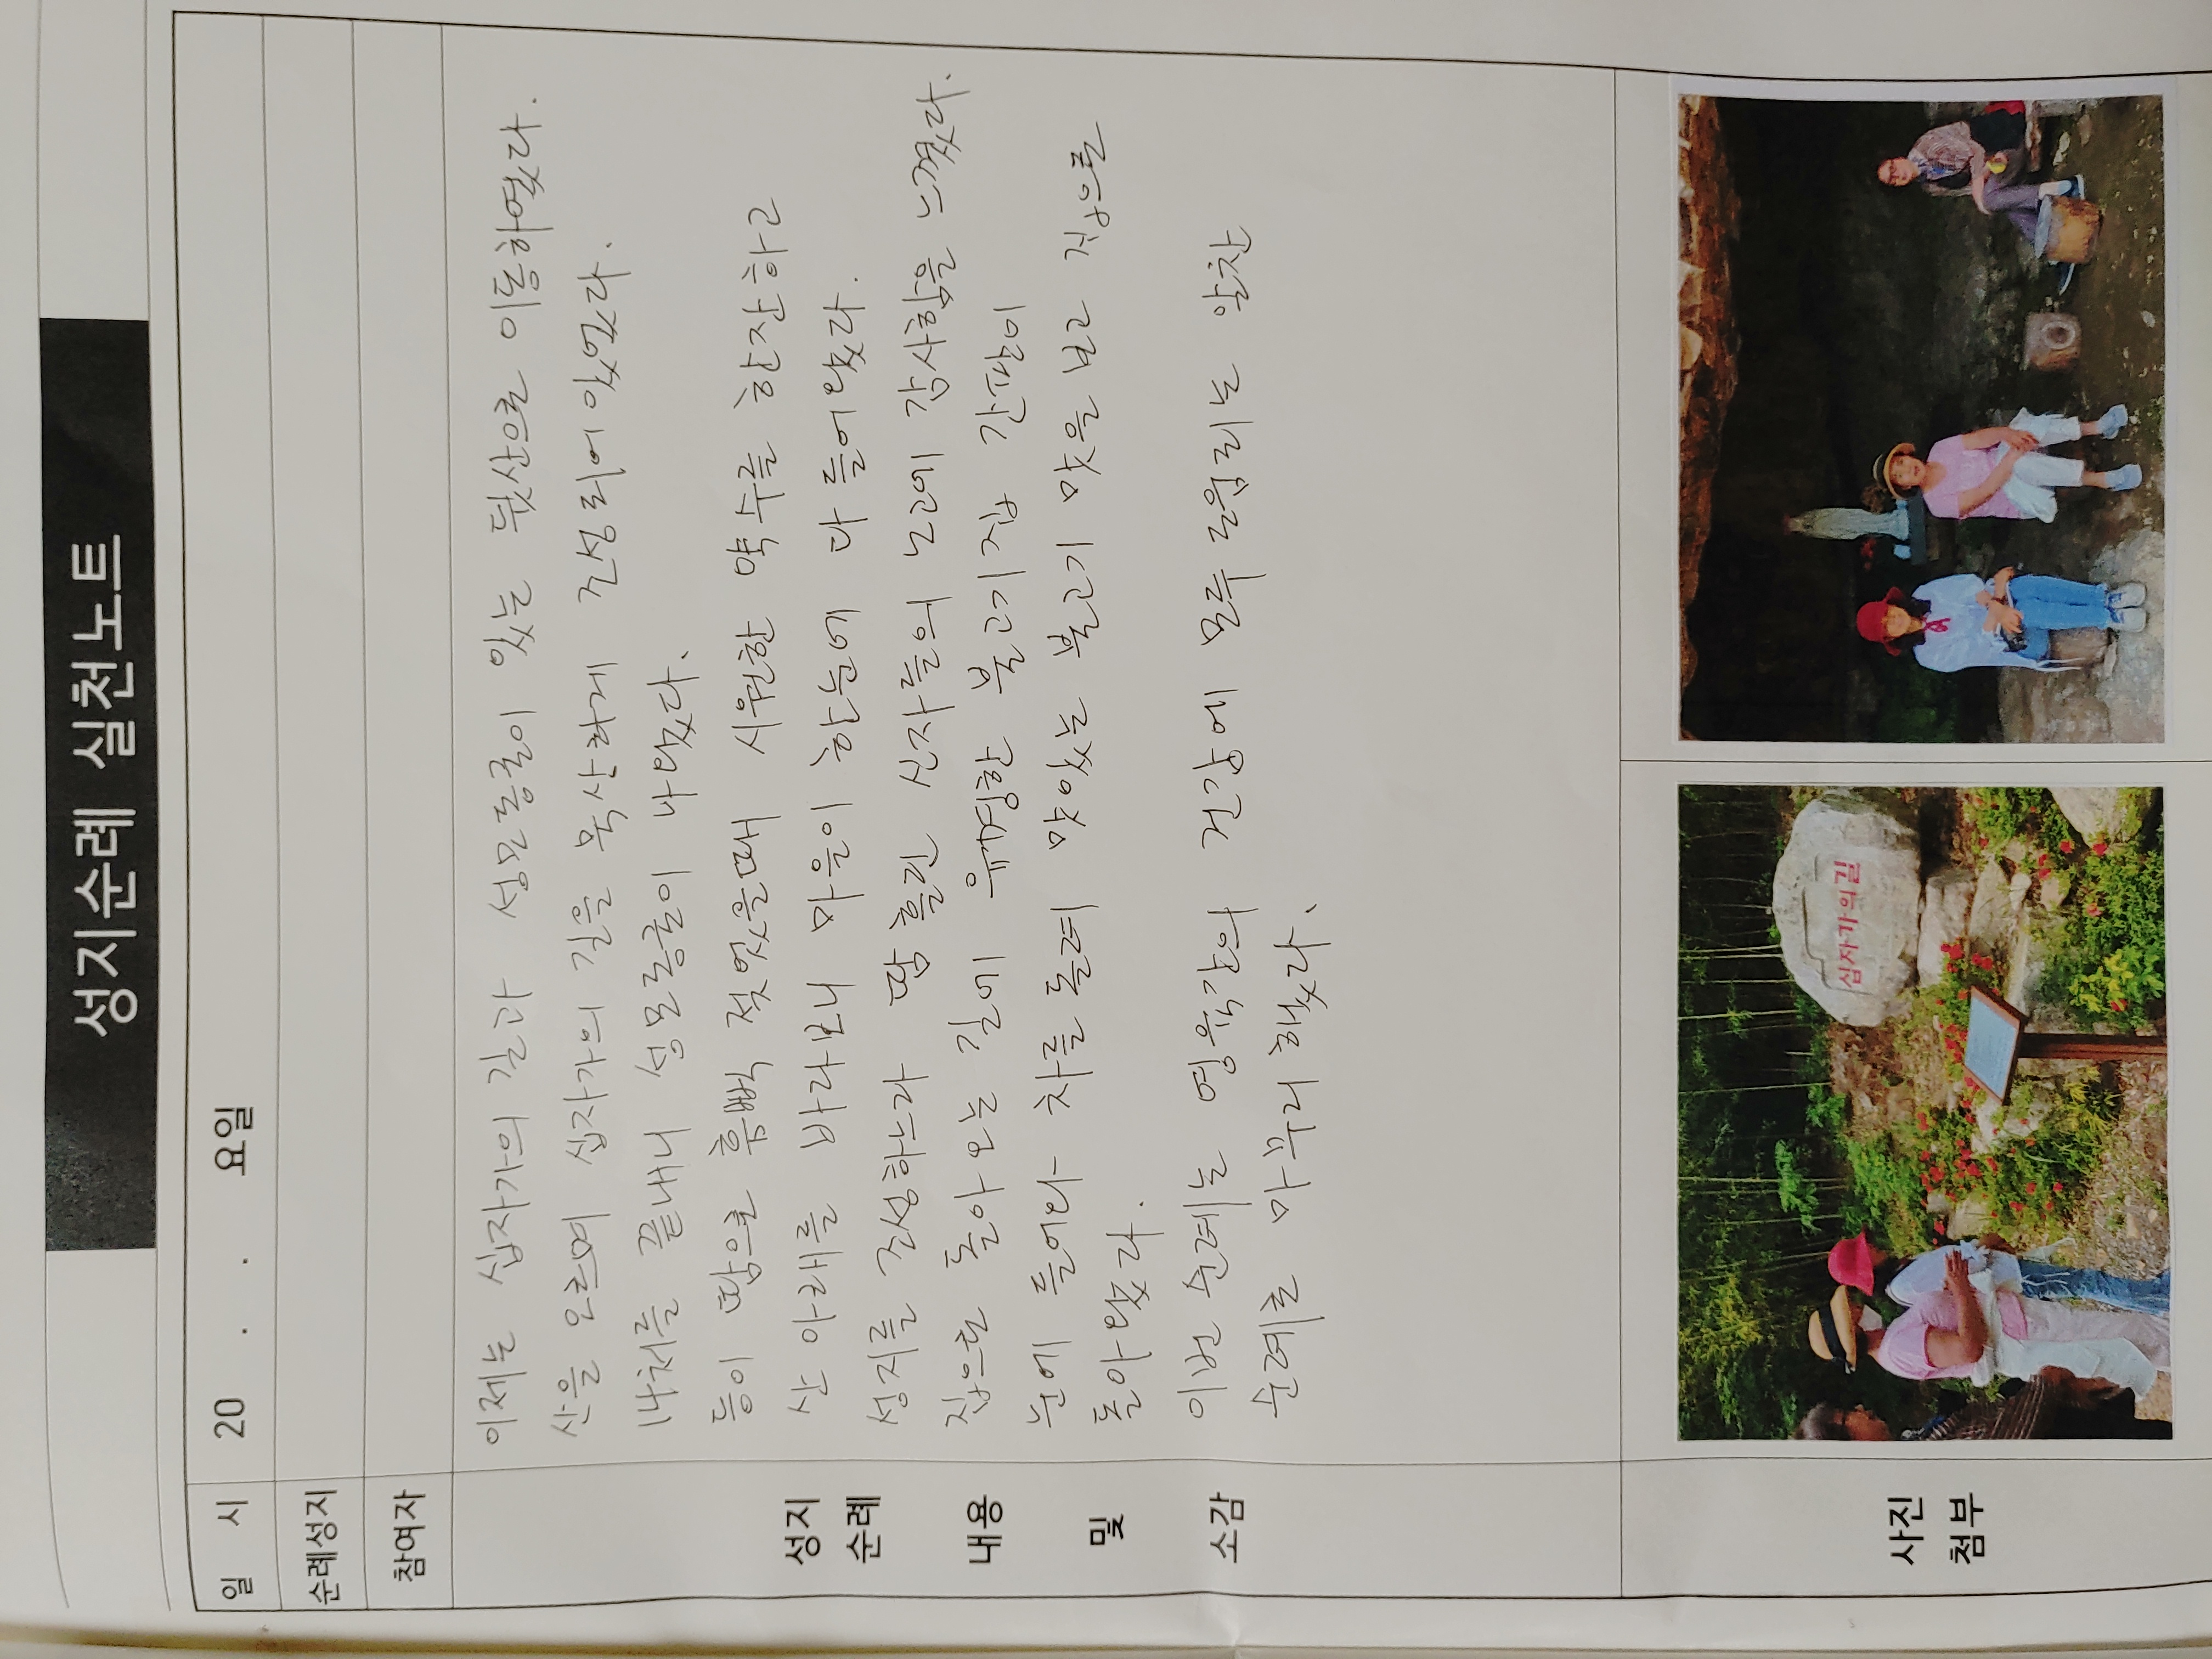 성지순례 실천노트
일 시 20 . . 요일
순례성지
참여자
이제는 십자가의 길과 성모동굴이 있는 뒷산으로 이동하였다.
산을 오르며 십자가의 길을 묵산하게 조성되어 있었다.
14처를 끝내니 성모동굴이 나왔다.
등이 땀으로 흠뻑 젖었을때 시원한 약수를 한잔하고
산 아래를 바라보니 마을이 한눈에 다 들어왔다.
성지를 조성하느라 땀 흘린 신자들의 노고에 감사함을 느꼈다.
집으로 돌아 오는 길에 유명한 불고기집 간판이
눈에 들어와 차를 돌려 맛있는 불고기 맛을 보고 집으로
돌아왔다.
이번 순례는 영육간의 건강에 모두 도움되는 알찬
순례로 마무리 했다.
성지
순례
내용
및
소감
사진
첨부
십자가의길